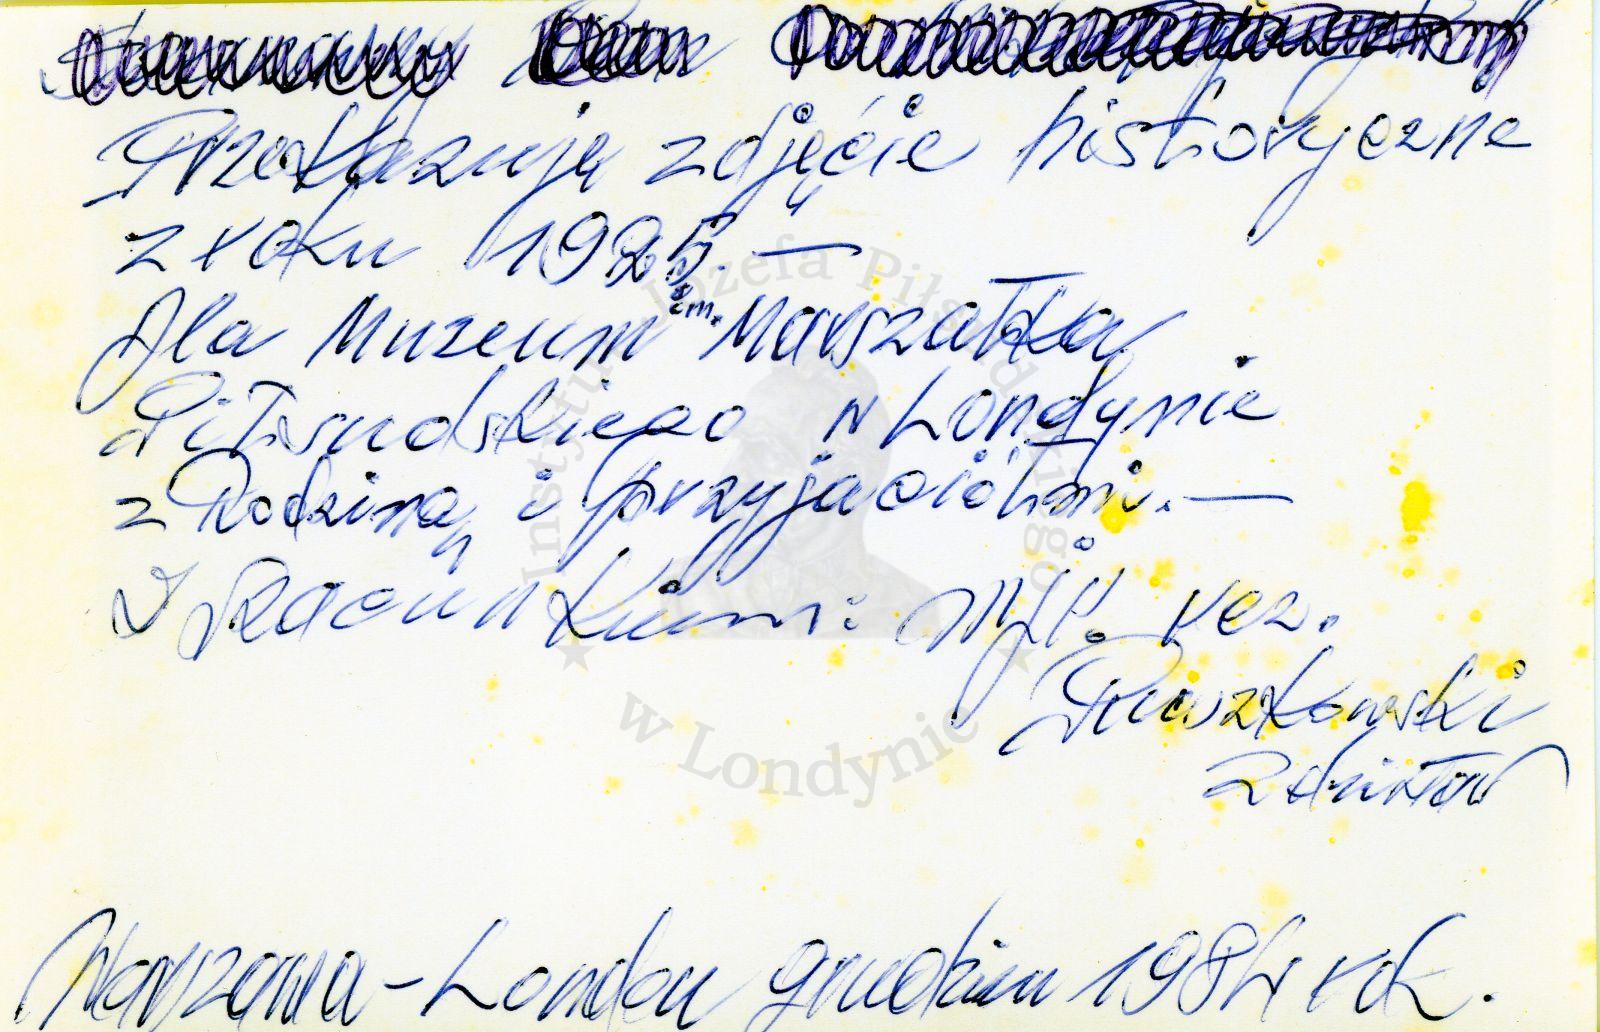 Przekazuję zdjęcie historyczne
z roku 1925. —
dla Muzeum im. Marszałka
Piłsudskiego w Londynie
z Rodziną i przyjaciółmi. —
Z szacunkiem: mjr. rez.
Pruszkowski
Zdzisław
Warszawa – London grudzień 1984 rok.
Instytut Józefa Piłsudskiego
w Londynie